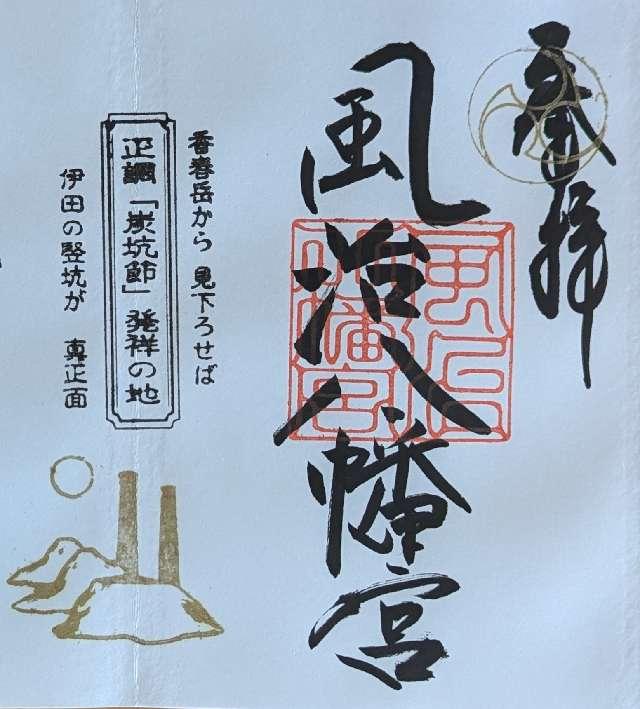 奉拝
風治八幡宮
風治八幡宮
香春岳から 見下ろせば
正調「炭坑節」発祥の地
伊田の竪坑が 真正面